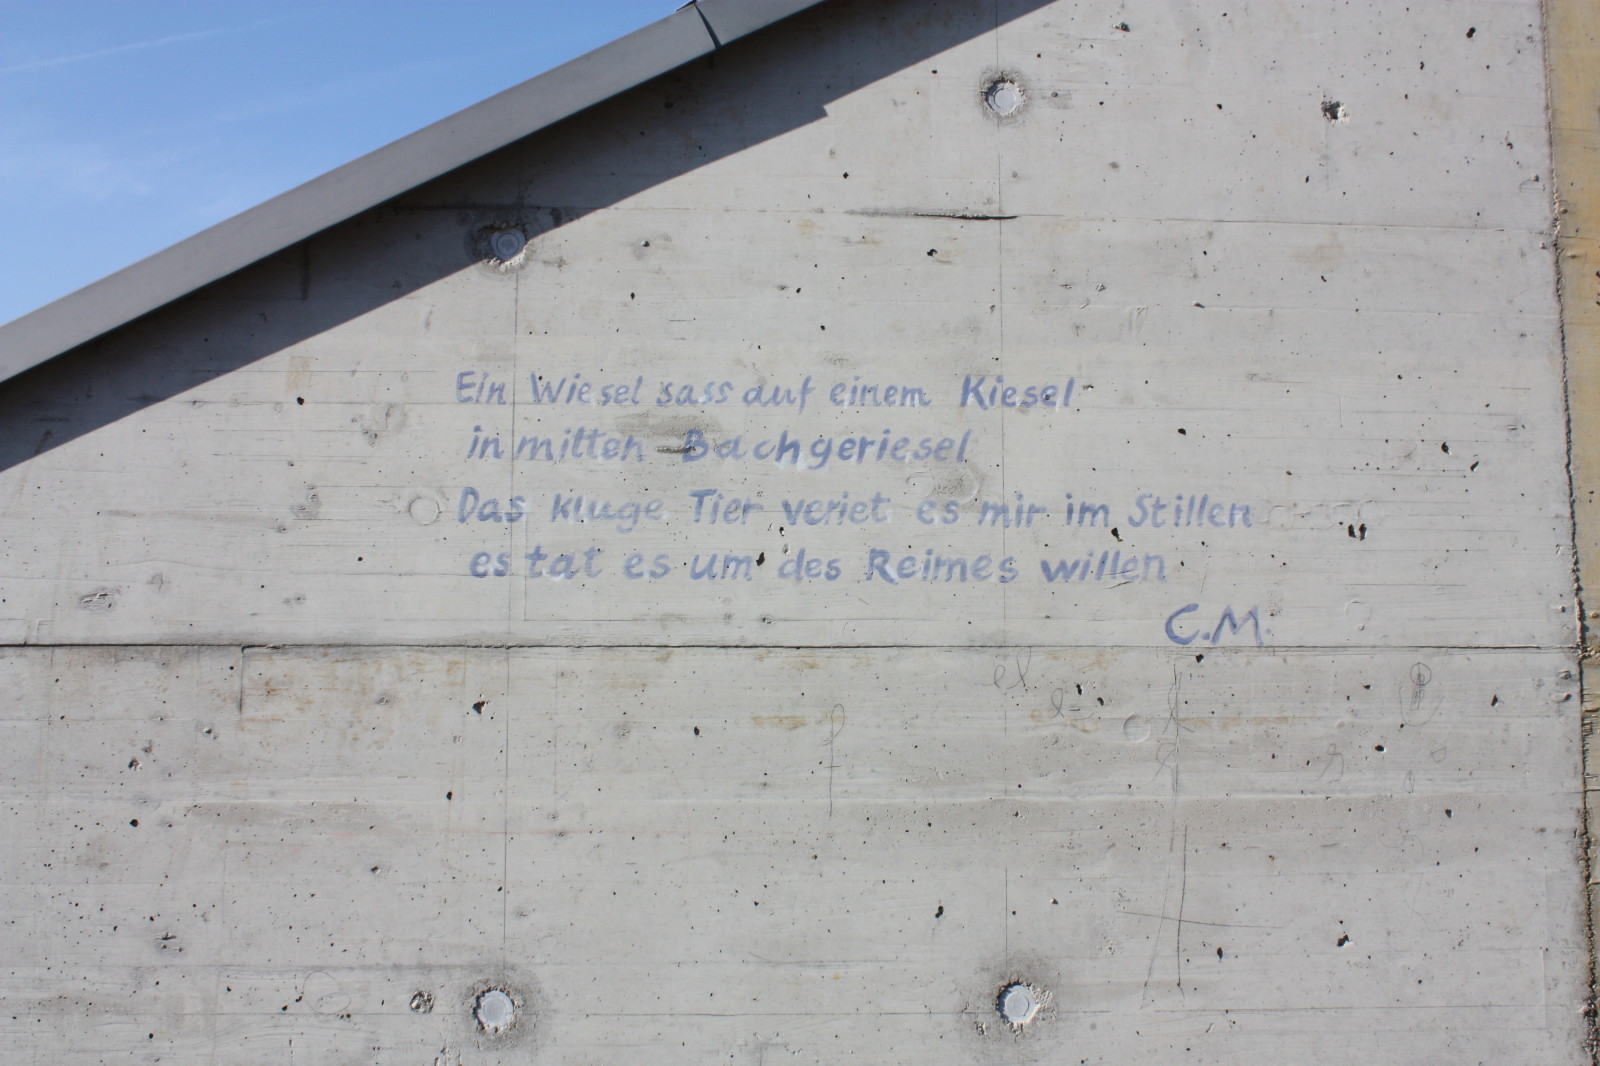 Ein Wiesel sass auf einem Kiesel
in mitten Bachgeriesel
Das kluge Tier veriet es mir im Stillen
es tat es um des Reimes willen
C.M.